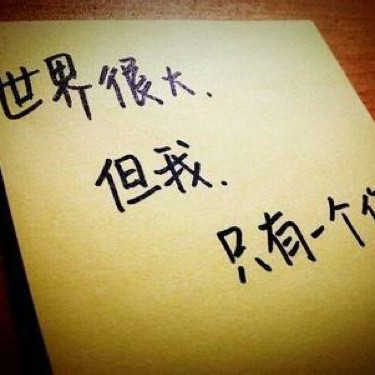 世界很大.
但我.
只有一个你